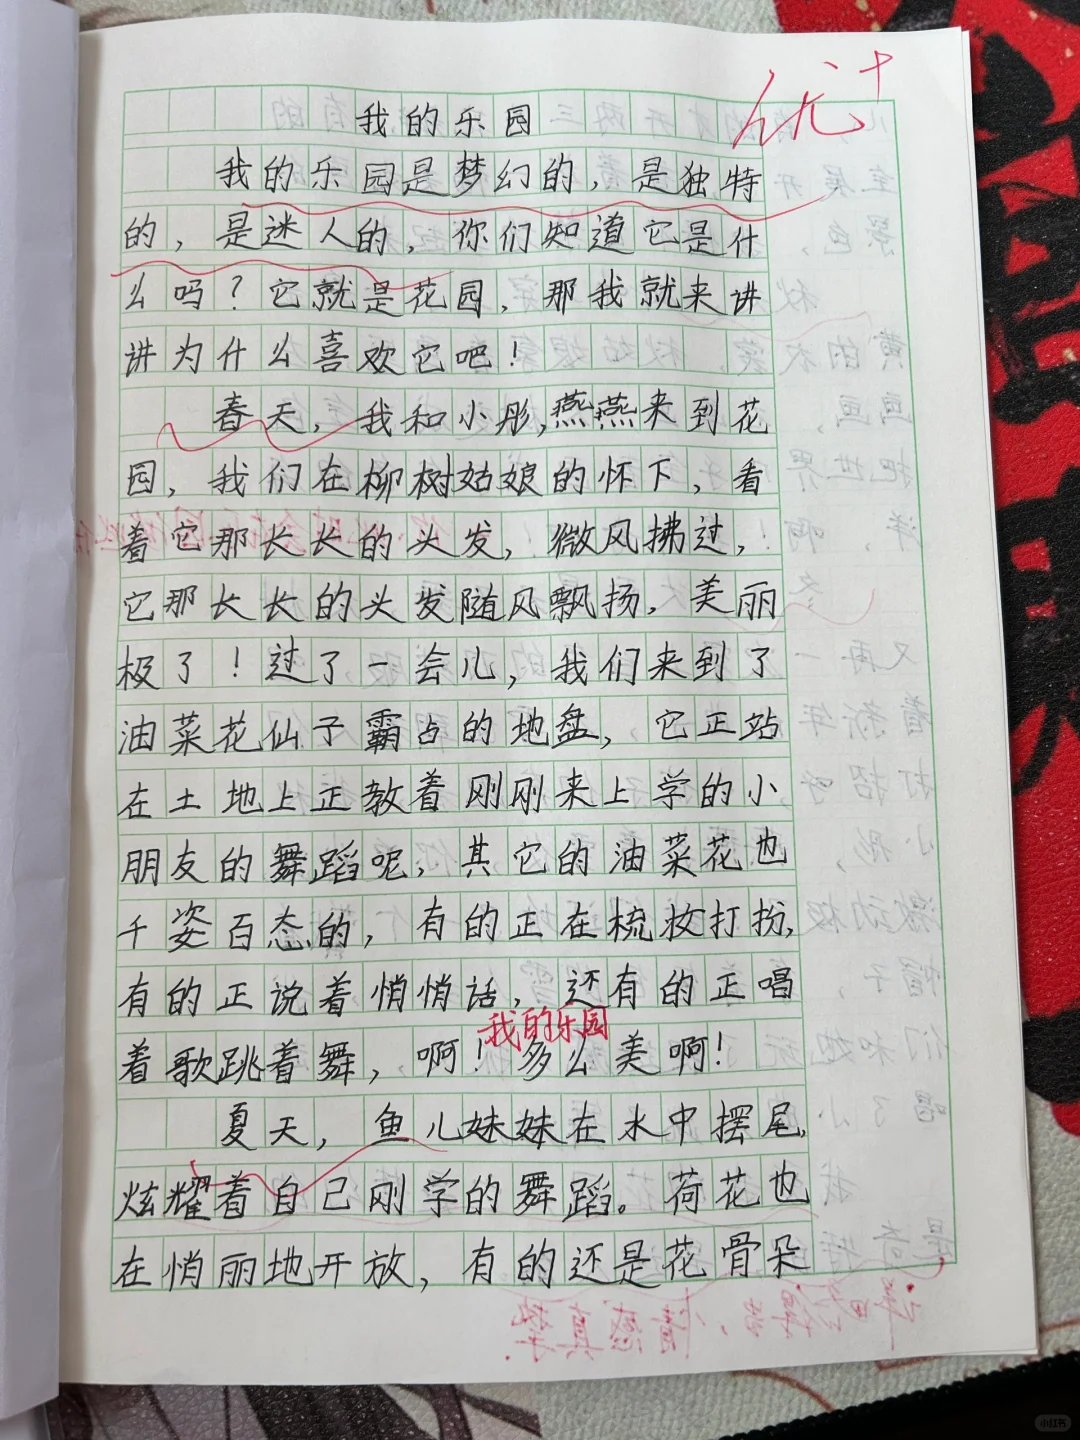 优+
我的乐园
我的乐园是梦幻的，是独特
的，是迷人的，你们知道它是什
么吗？它就是花园，那我就来讲
讲为什么喜欢它吧！
春天，我和小彤，燕燕来到花
园，我们在柳树姑娘的怀下，看
着它那长长的头发，微风拂过，
它那长长的头发随风飘扬，美丽
极了！过了一会儿，我们来到了
油菜花仙子霸占的地盘，它正站
在土地上正教着刚刚来上学的小
朋友的舞蹈呢，其它的油菜花也
千姿百态的，有的正在梳妆打扮，
有的正说着悄悄话，还有的正唱
我的乐园
着歌跳着舞，啊！多么美啊！
夏天，鱼儿妹妹在水中摆尾，
炫耀着自己刚学的舞蹈。荷花也
在悄丽地开放，有的还是花骨朵
小红书